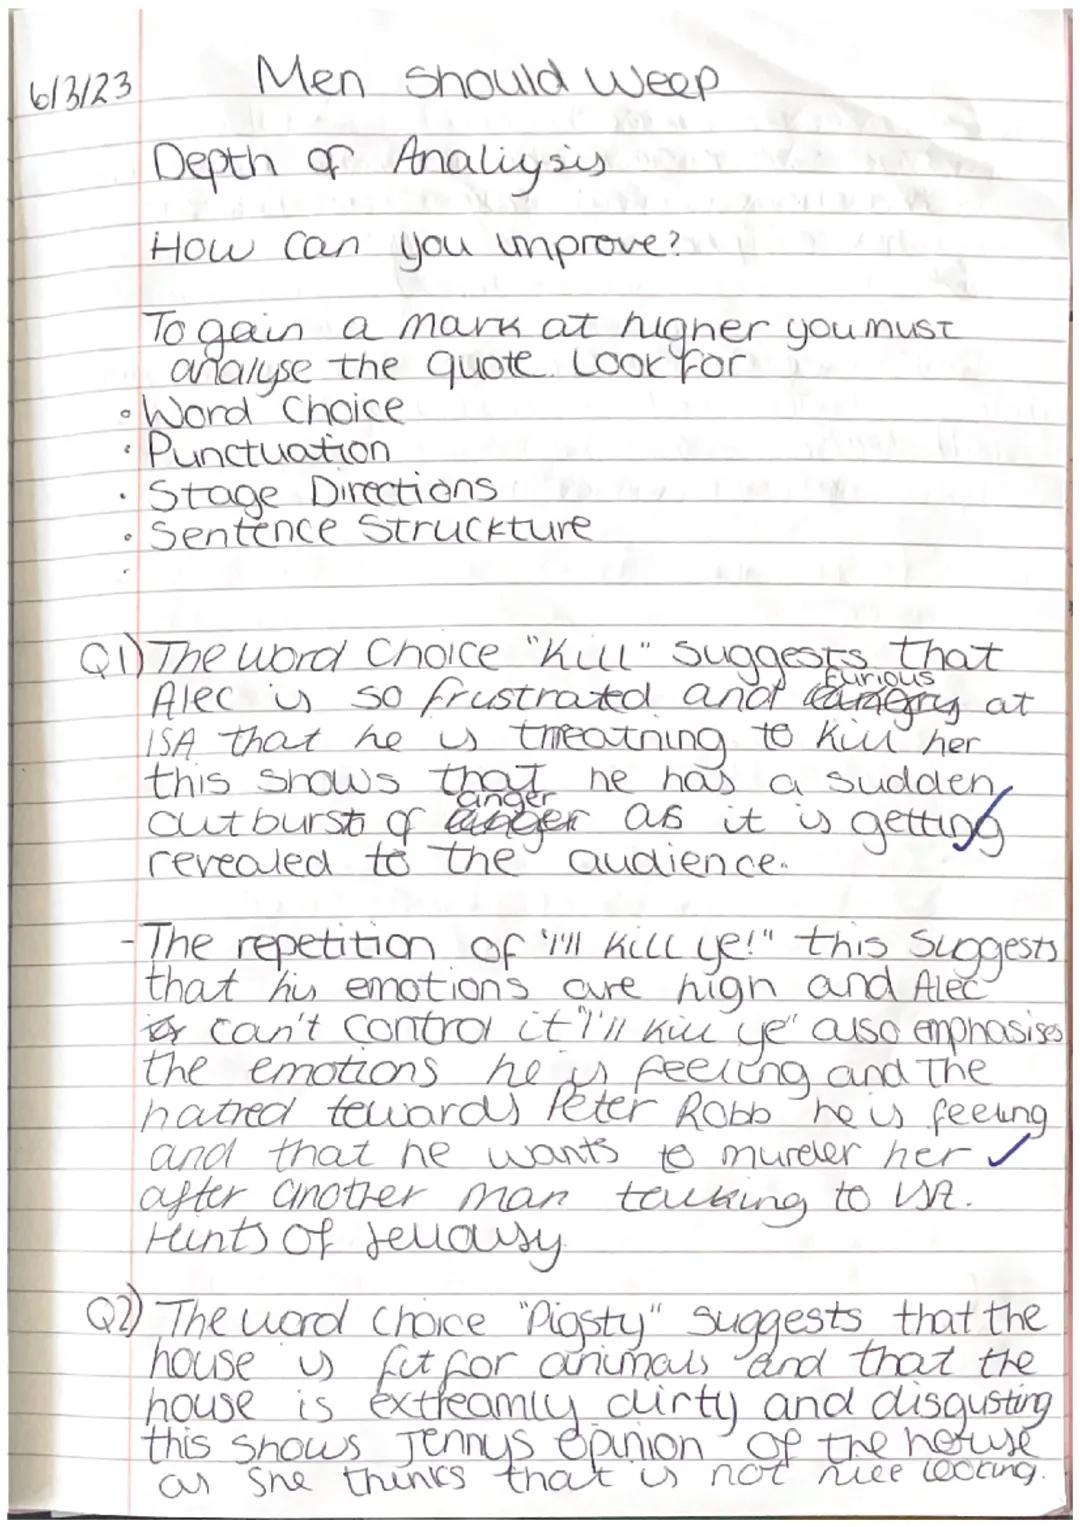 6/3/23
Men Should Weep
Depth of Analiysis
How can you improve?
To gain a mark at higher you must
analyse the quote. Look for
• Word Choice
• Punctuation
• Stage Directions
• Sentence Struckture
•
Q1) The word Choice "Kill" Suggests that
furious
Alec is so frustrated and at
ISA that he is threatning to kill her
this shows that he has a sudden
anger
outburst of as it is getting
revealed to the audience.
- The repetition of "I'll kill ye!" this Suggests
that his emotions are high and Alec
can't control it "I'll kill ye" also emphasises
the emotions he is feeling and The
hatred tewards Peter Robb he is feeling
and that he wants to murder her
after another man talking to ISA.
Hints of Jellousy.
Q2) The word choice "Pigsty" suggests that the
house is fit for animals and that the
house is extreamly dirty and disgusting
this shows Jennys opinion of the house
as she thinks that is not nice looking.